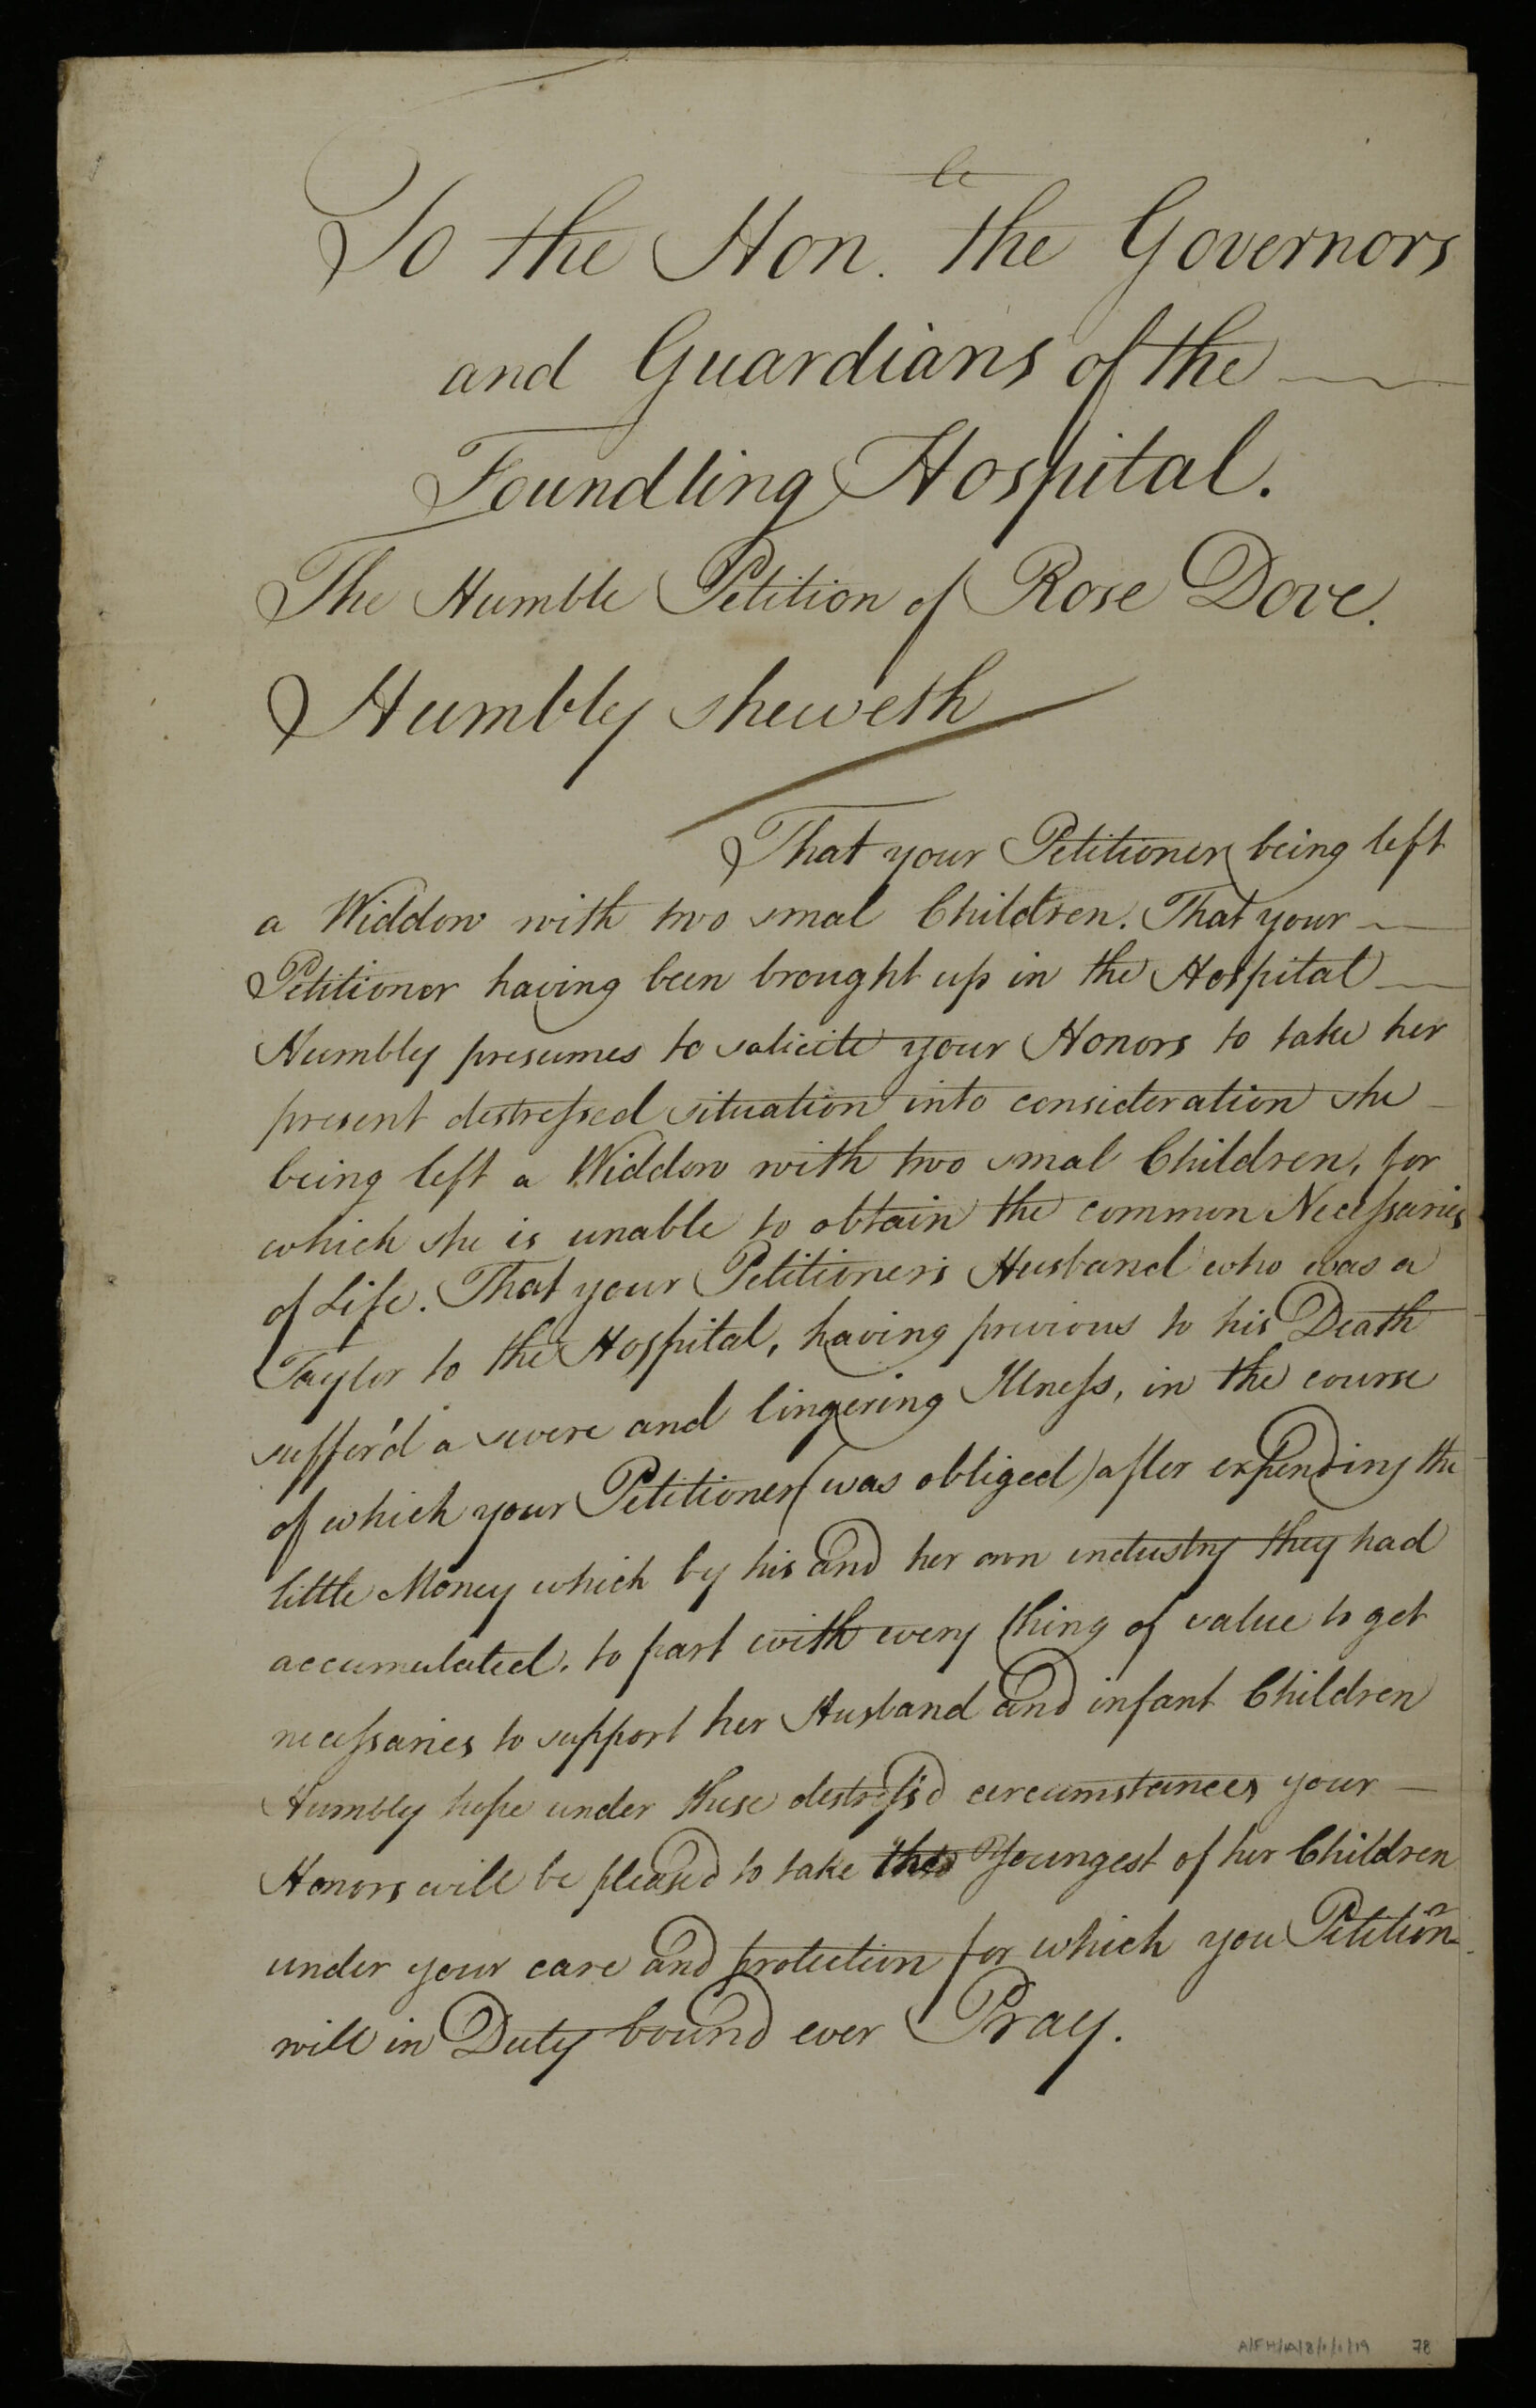 To the Hon.le the Governors
and Guardians of the
Foundling Hospital.
The Humble Petition of Rose Dove.
Humbly sheweth
That your Petitioner being left
a Widdow with two smal Children. That your
Petitioner having been brought up in the Hospital
Humbly presumes to solicite your Honors to take her
present destressed situation into consideration she
being left a Widdow with two smal Children, for
which she is unable to obtain the common Necessaries
of Life. That your Petitioner's Husband who was a
Taylor to the Hospital, having previous to his Death
suffer'd a severe and lingering Illness, in the course
of which your Petitioner (was obliged) after expending the
little Money which by his and her own industry they had
accumulated. to part with every thing of value to get
necessaries to support her Husband and infant Children
Humbly hope under these destress'd cercumstances your
Honors will be pleased to take the Youngest of her Children
under your care and protection for which you Petitionr
will in Duty bound ever Pray.
78